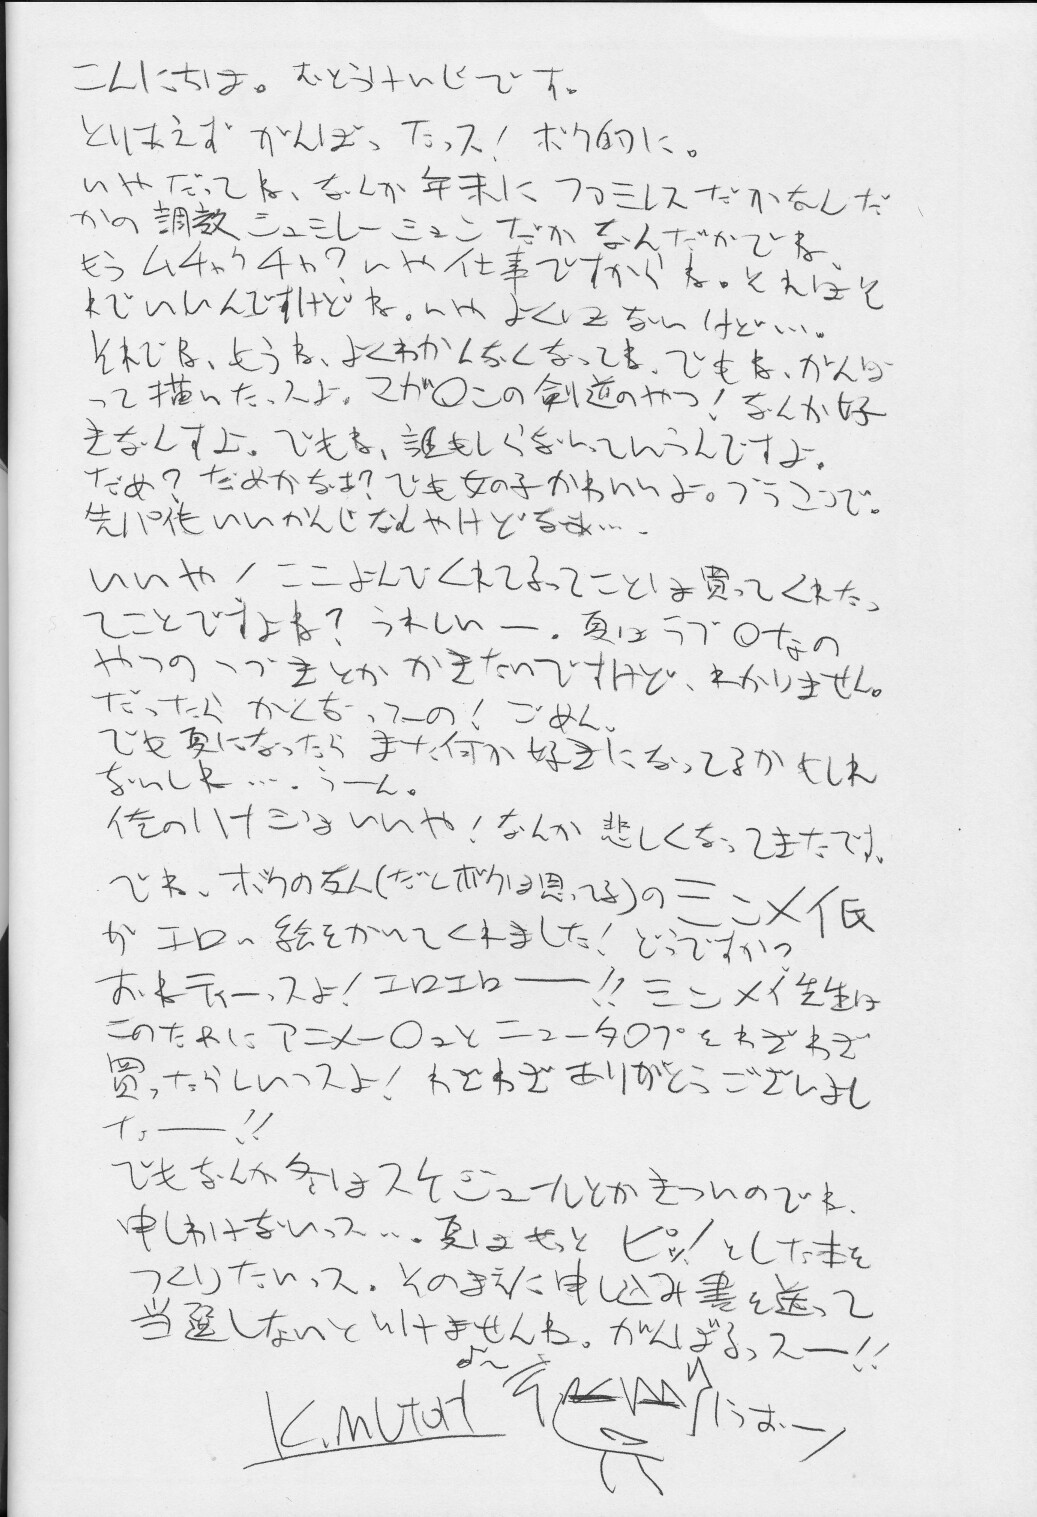 こんにちは。むとうけいじです。
とりあえずがんばったっス!ボク的に。
いやだってね、なんか年末にファミレスだかなんだ
かの調教シュミレーションだかなんだかでね、
もうムチャクチャ?いや仕事ですからね。それはそ
れでいいんですけどね。いやよくはないけど…。
それでね、もうね、よくわかんなくなってね、でもね、がんば
って描いたっスよ。マガ〇ンの剣道のやつ!なんか好
きなんすよ。でもね、誰もしらないっていうんですよ。
だめ?だめかなぁ?でも女の子かわいいよ。ブラコンで。
先パイもいいかんじなんやけどなぁ…。
いいや!ここよんでくれてるってことは買ってくれたっ
てことですよね?うれしいー。夏はラブ〇なの
やつのつづきとかかきたいですけど、わかりません。
だったらかくなってーの!ごめん。
でも夏になったらまた何か好きになってるかもしれ
ないしね…。うーん。
俺のハナシはいいや!なんか悲しくなってきたです。
でね、ボクの友人(だとボクは思ってる)のミンメイ氏
がエロい絵をかいてくれました!どうですかっ
おねティーっスよ!エロエロー!!ミンメイ先生は
このためにアニメー〇ュとニュータ〇プをわざわざ
買ったらしいっスよ!わざわざありがとうございまし
たー!!
でもなんか冬はスケジュールとかきついのでね、
申しわけないっス…。夏はもっとピッ!とした本を
つくりたいっス。そのまえに申し込み書を送って
当選しないといけませんね。がんばるっスー!!
K.MUTOH
うおー